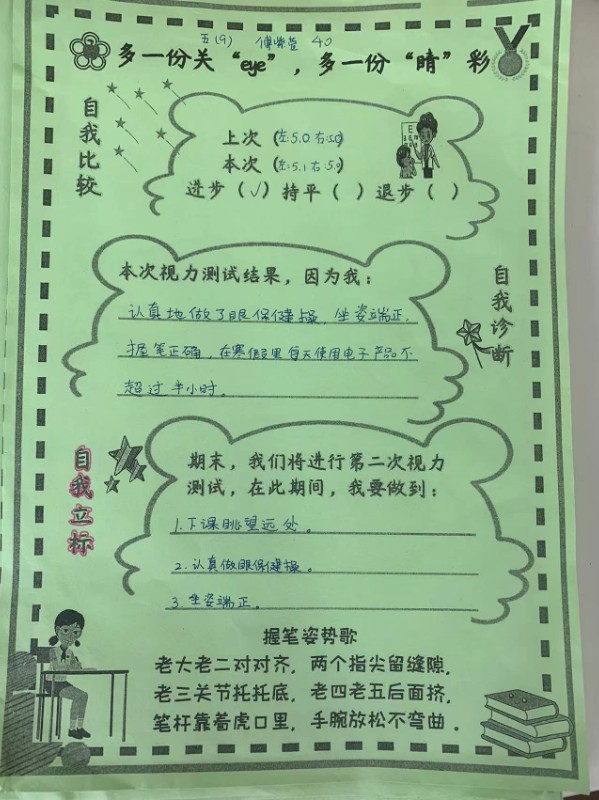 五(9) 傅紫萱 40
多一份关“eye”，多一份“睛”彩
自我比较
上次（左:5.0右:5.0）
本次（左:5.1右:5.0）
进步（√）持平（ ）退步（ ）
本次视力测试结果，因为我：
认真地做了眼保健操，坐姿端正，
握笔正确，在寒假里每天使用电子产品不
超过半小时。
自我诊断
自我立标
期末，我们将进行第二次视力
测试，在此期间，我要做到：
1.下课眺望远处。
2.认真做眼保健操。
3.坐姿端正。
握笔姿势歌
老大老二对对齐，两个指尖留缝隙，
老三关节托托底，老四老五后面挤，
笔杆靠着虎口里，手腕放松不弯曲。